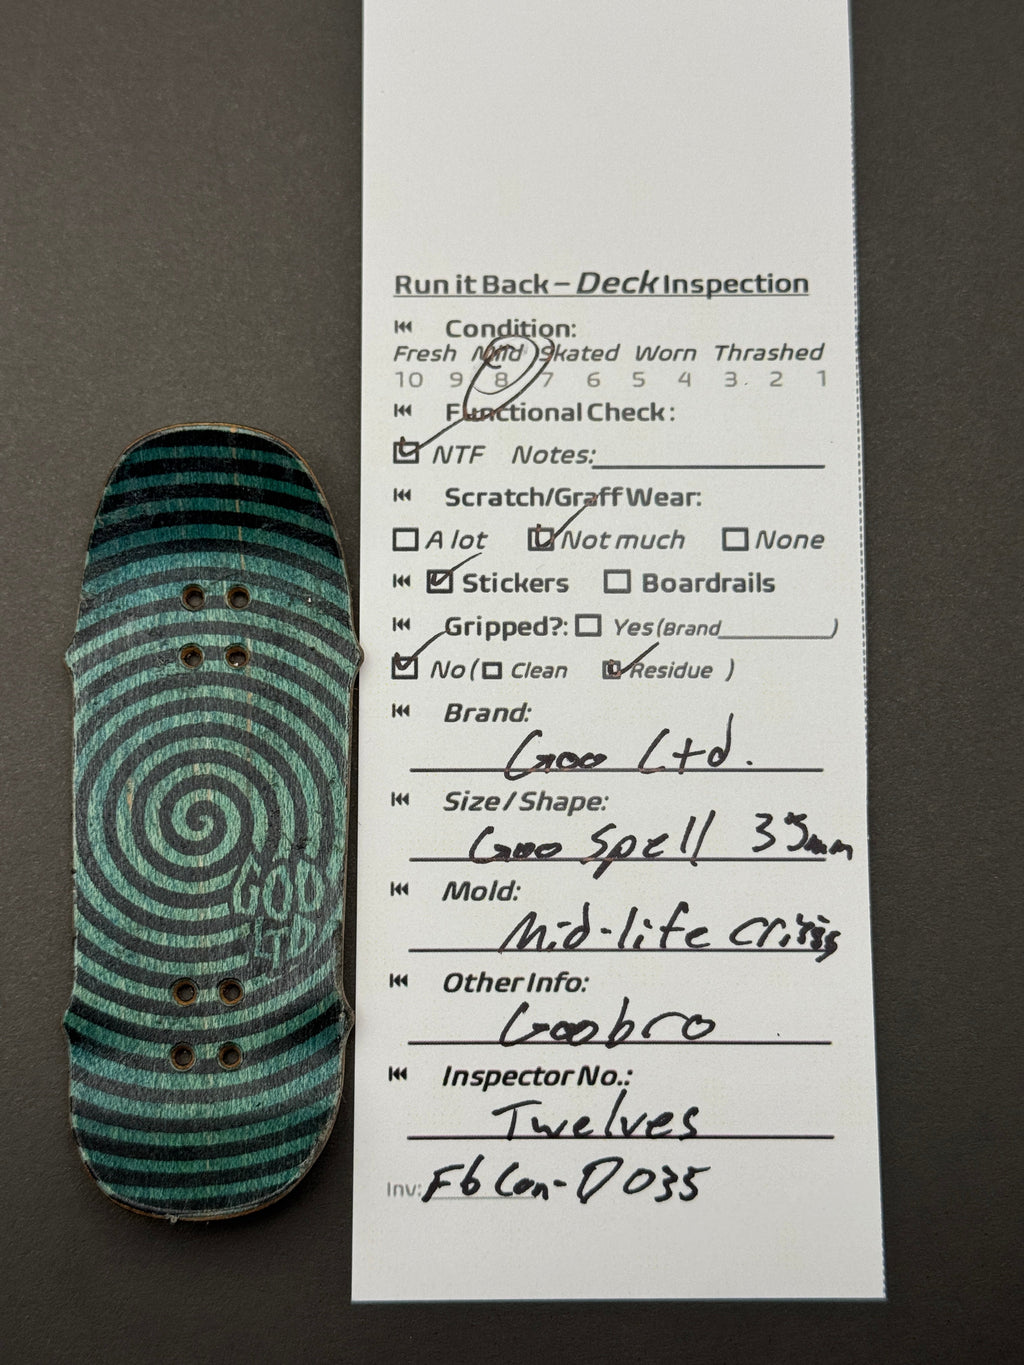 Run it Back – Deck Inspection
Condition:
Fresh Mild Skated Worn Thrashed
10 9 8 7 6 5 4 3 2 1
Functional Check:
NTF Notes:
Scratch/Graff Wear:
A lot Not much None
Stickers Boardrails
Gripped?: Yes (Brand )
No ( Clean Residue )
Brand:
Goo Ltd.
Size / Shape:
Goo Spell 35mm
Mold:
Mid-life crisis
Other Info:
Goobro
Inspector No.:
Twelves
Inv: Fb Con-D035
GOO
LTD